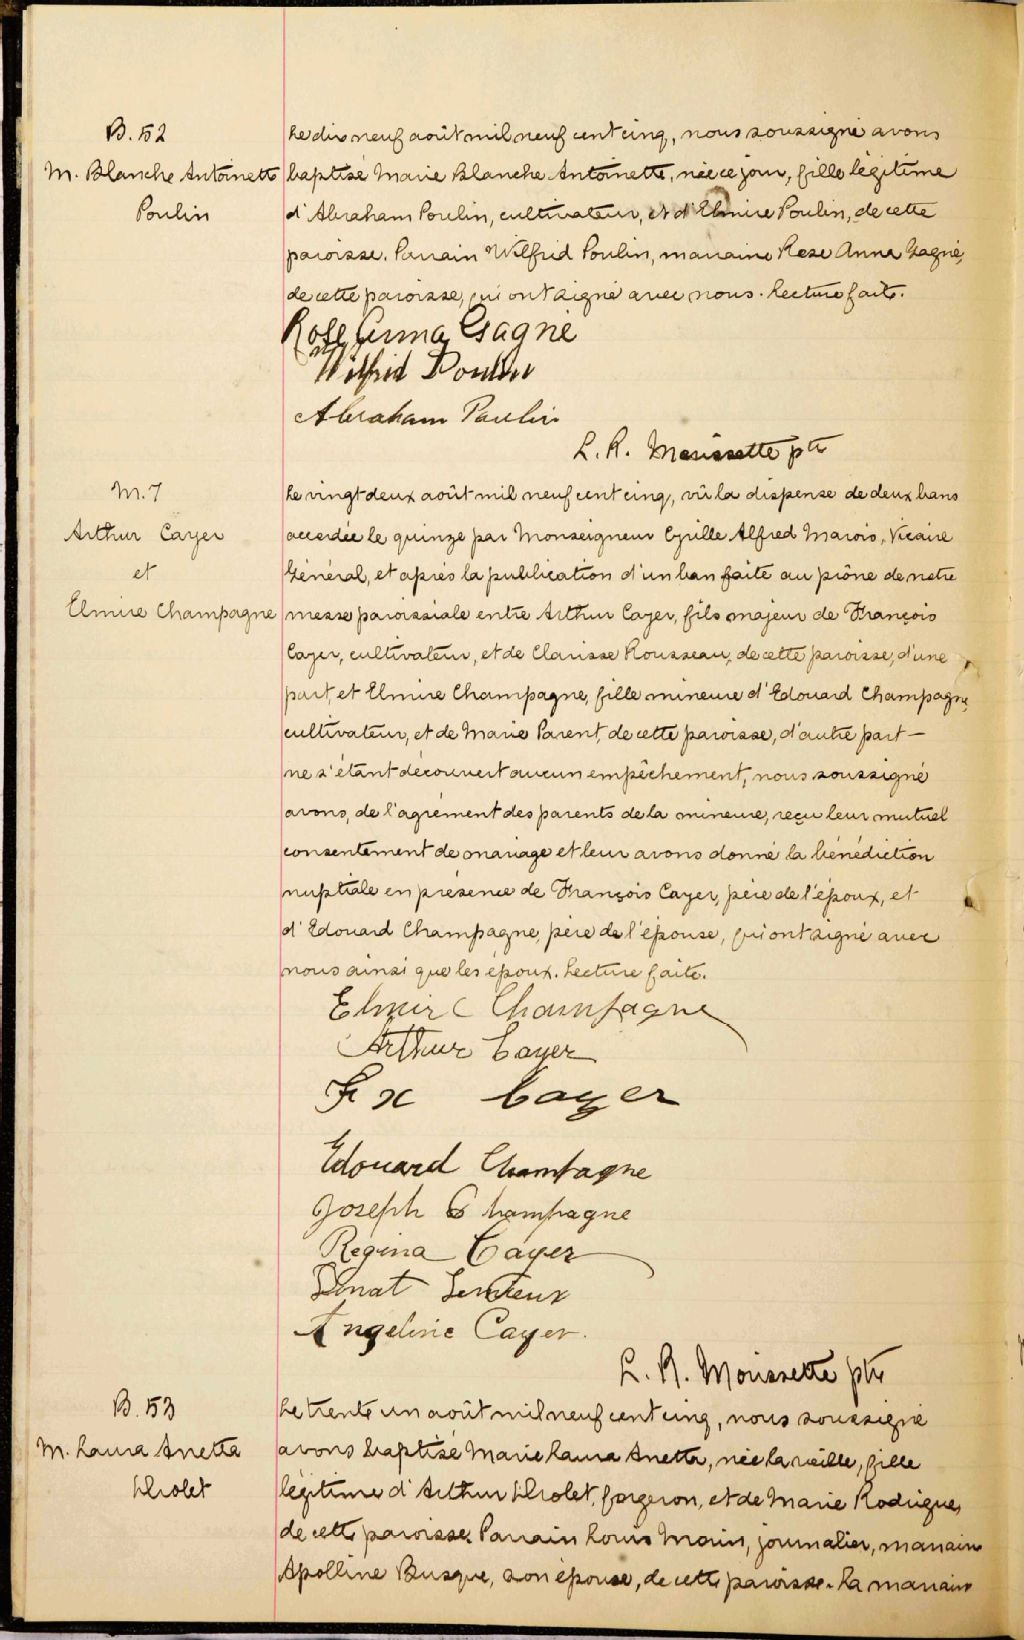 B. 52
M. Blanche Antoinette
Poulin
Le dix neuf août mil neuf cent cinq, nous soussigné avons
baptisé Marie Blanche Antoinette, née ce jour, fille légitime
d'Abraham Poulin, cultivateur, et d'Elmire Poulin, de cette
paroisse. Parrain Wilfrid Poulin, marraine Rose Anna Gagné,
de cette paroisse, qui ont signé avec nous. Lecture faite.
Rose Anna Gagné
Wilfrid Poulin
Abraham Poulin
L. R. Morissette ptre
M. 7
Arthur Cayer
et
Elmire Champagne
Le vingt deux août mil neuf cent cinq, vû la dispense de deux bans
accordée le quinze par Monseigneur Cyrille Alfred Marois, Vicaire
Général, et après la publication d'un ban faite au prône de notre
messe paroissiale entre Arthur Cayer, fils majeur de François
Cayer, cultivateur, et de Clarisse Rousseau, de cette paroisse, d'une
part, et Elmire Champagne, fille mineure d'Edouard Champagne,
cultivateur, et de Marie Parent, de cette paroisse, d'autre part –
ne s'étant découvert aucun empêchement, nous soussigné
avons, de l'agrément des parents de la mineure, reçu leur mutuel
consentement de mariage et leur avons donné la bénédiction
nuptiale en présence de François Cayer, père de l'époux, et
d'Edouard Champagne, père de l'épouse, qui ont signé avec
nous ainsi que les époux. Lecture faite.
Elmire Champagne
Arthur Cayer
F x Cayer
Edouard Champagne
Joseph Champagne
Régina Cayer
Donat Lemieux
Angeline Cayer.
L. R. Morissette ptre
B. 53
M. Laura Anetta
Drolet
Le trente un août mil neuf cent cinq, nous soussigné
avons baptisé Marie Laura Anetta, née la veille, fille
légitime d'Arthur Drolet, forgeron, et de Marie Rodrigue,
de cette paroisse. Parrain Louis Morin, journalier, marraine
Apolline Busque, son épouse, de cette paroisse. La marraine